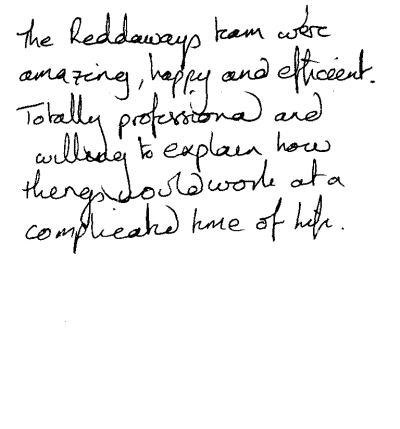 The Reddaways team were
amazing, happy and efficient.
Totally professional and
willing to explain how
things would work at a
complicated time of life.